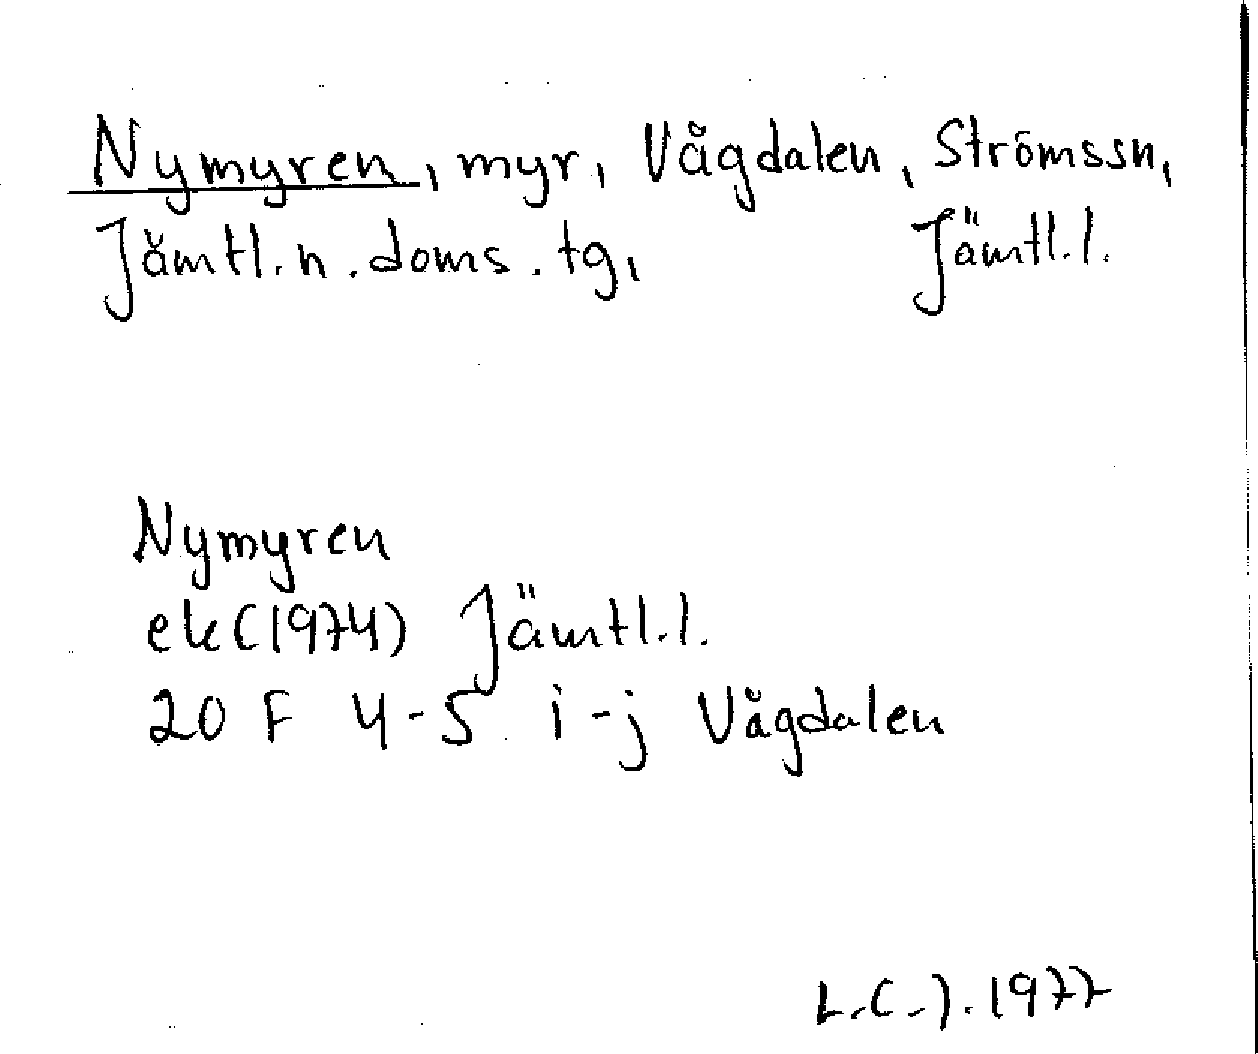 Nymyren, myr, Vågdalen, Strömssn,
Jämtl.n.doms.tg, Jämtl.l.
Nymyren
ek(1974) Jämtl.l.
20 F 4-5 i-j Vågdalen
L.C.J.1977